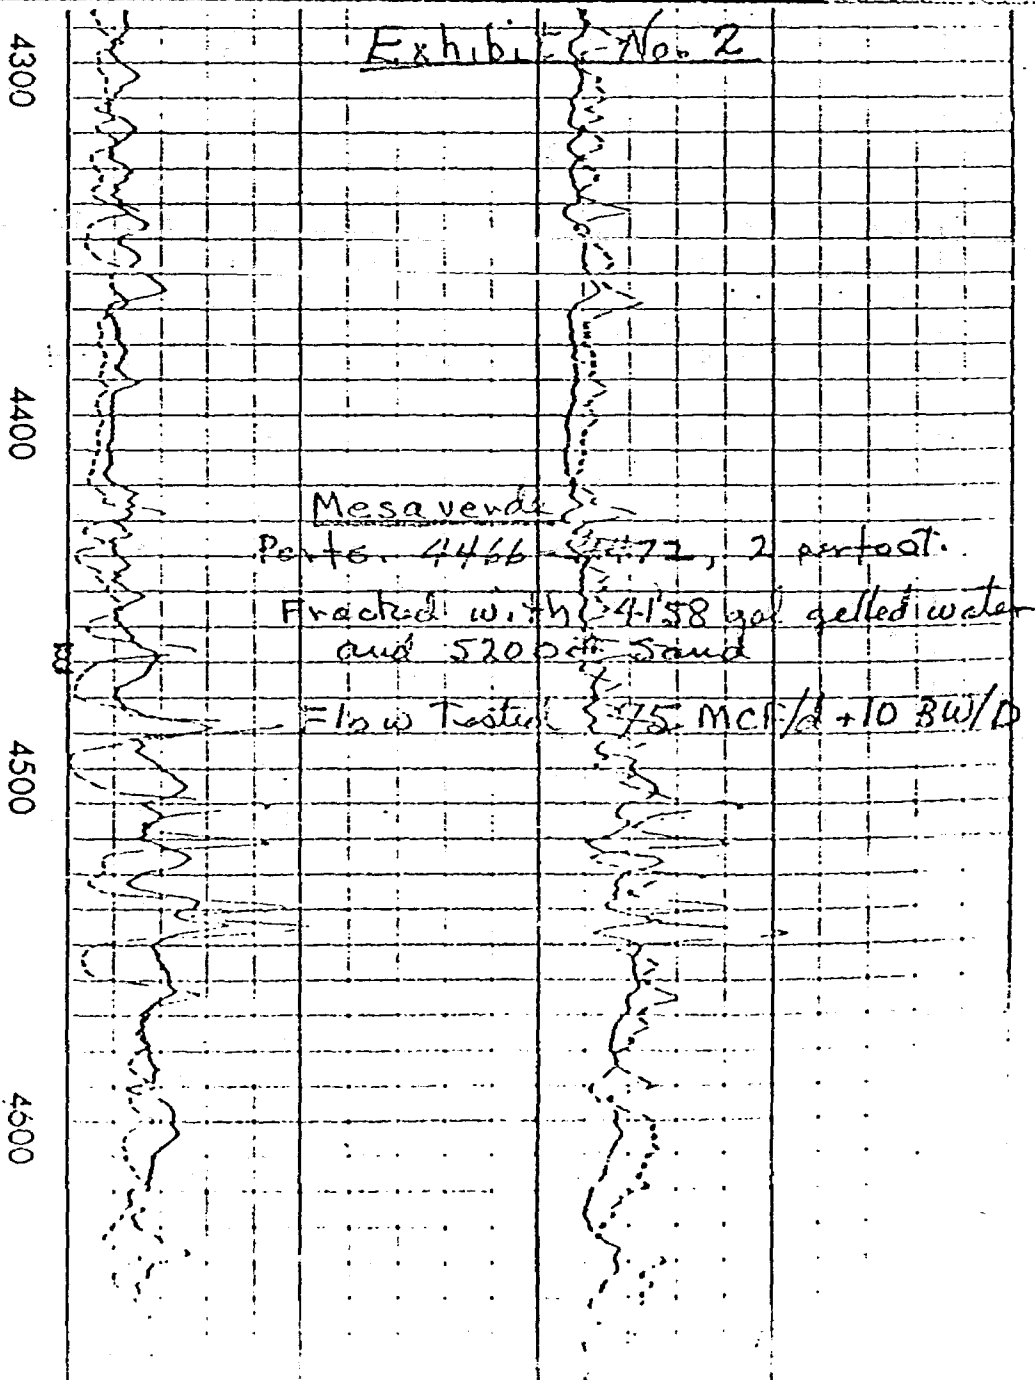 Exhibit No. 2
4300
4400
Mesaverde
Perfs. 4466 - 4472, 2 perfoot.
Fracked with 4158 gal gelled water
and 5200# Sand
Flow Tested 75 MCF/d + 10 BW/D
4500
4600